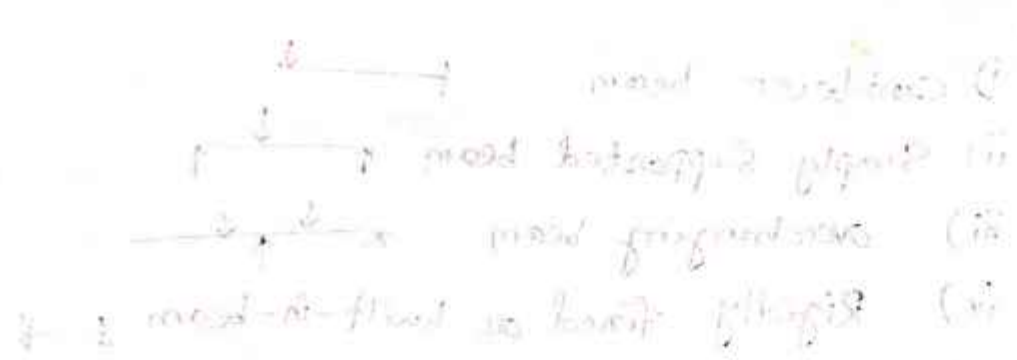 i) cantilever beam
ii) Simply Supported beam
iii) overhanging beam
iv) Rigidly fixed or built-in-beam